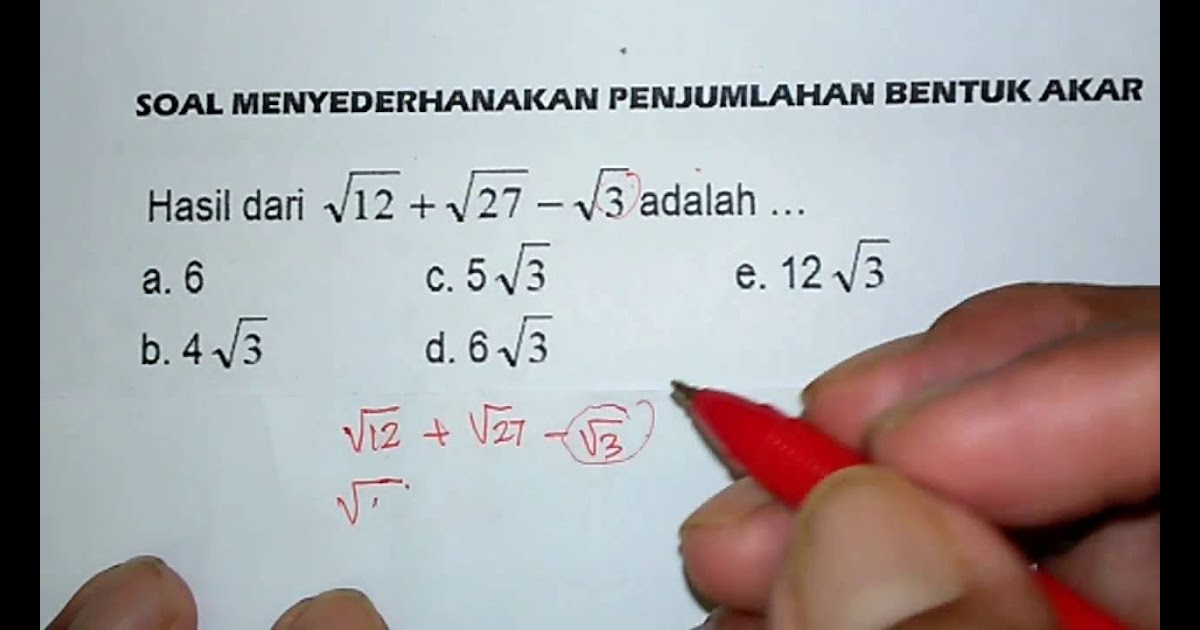 SOAL MENYEDERHANAKAN PENJUMLAHAN BENTUK AKAR
Hasil dari √12 + √27 − √3 adalah ...
a. 6 c. 5√3 e. 12√3
b. 4√3 d. 6√3
√12 + √27 − √3
√